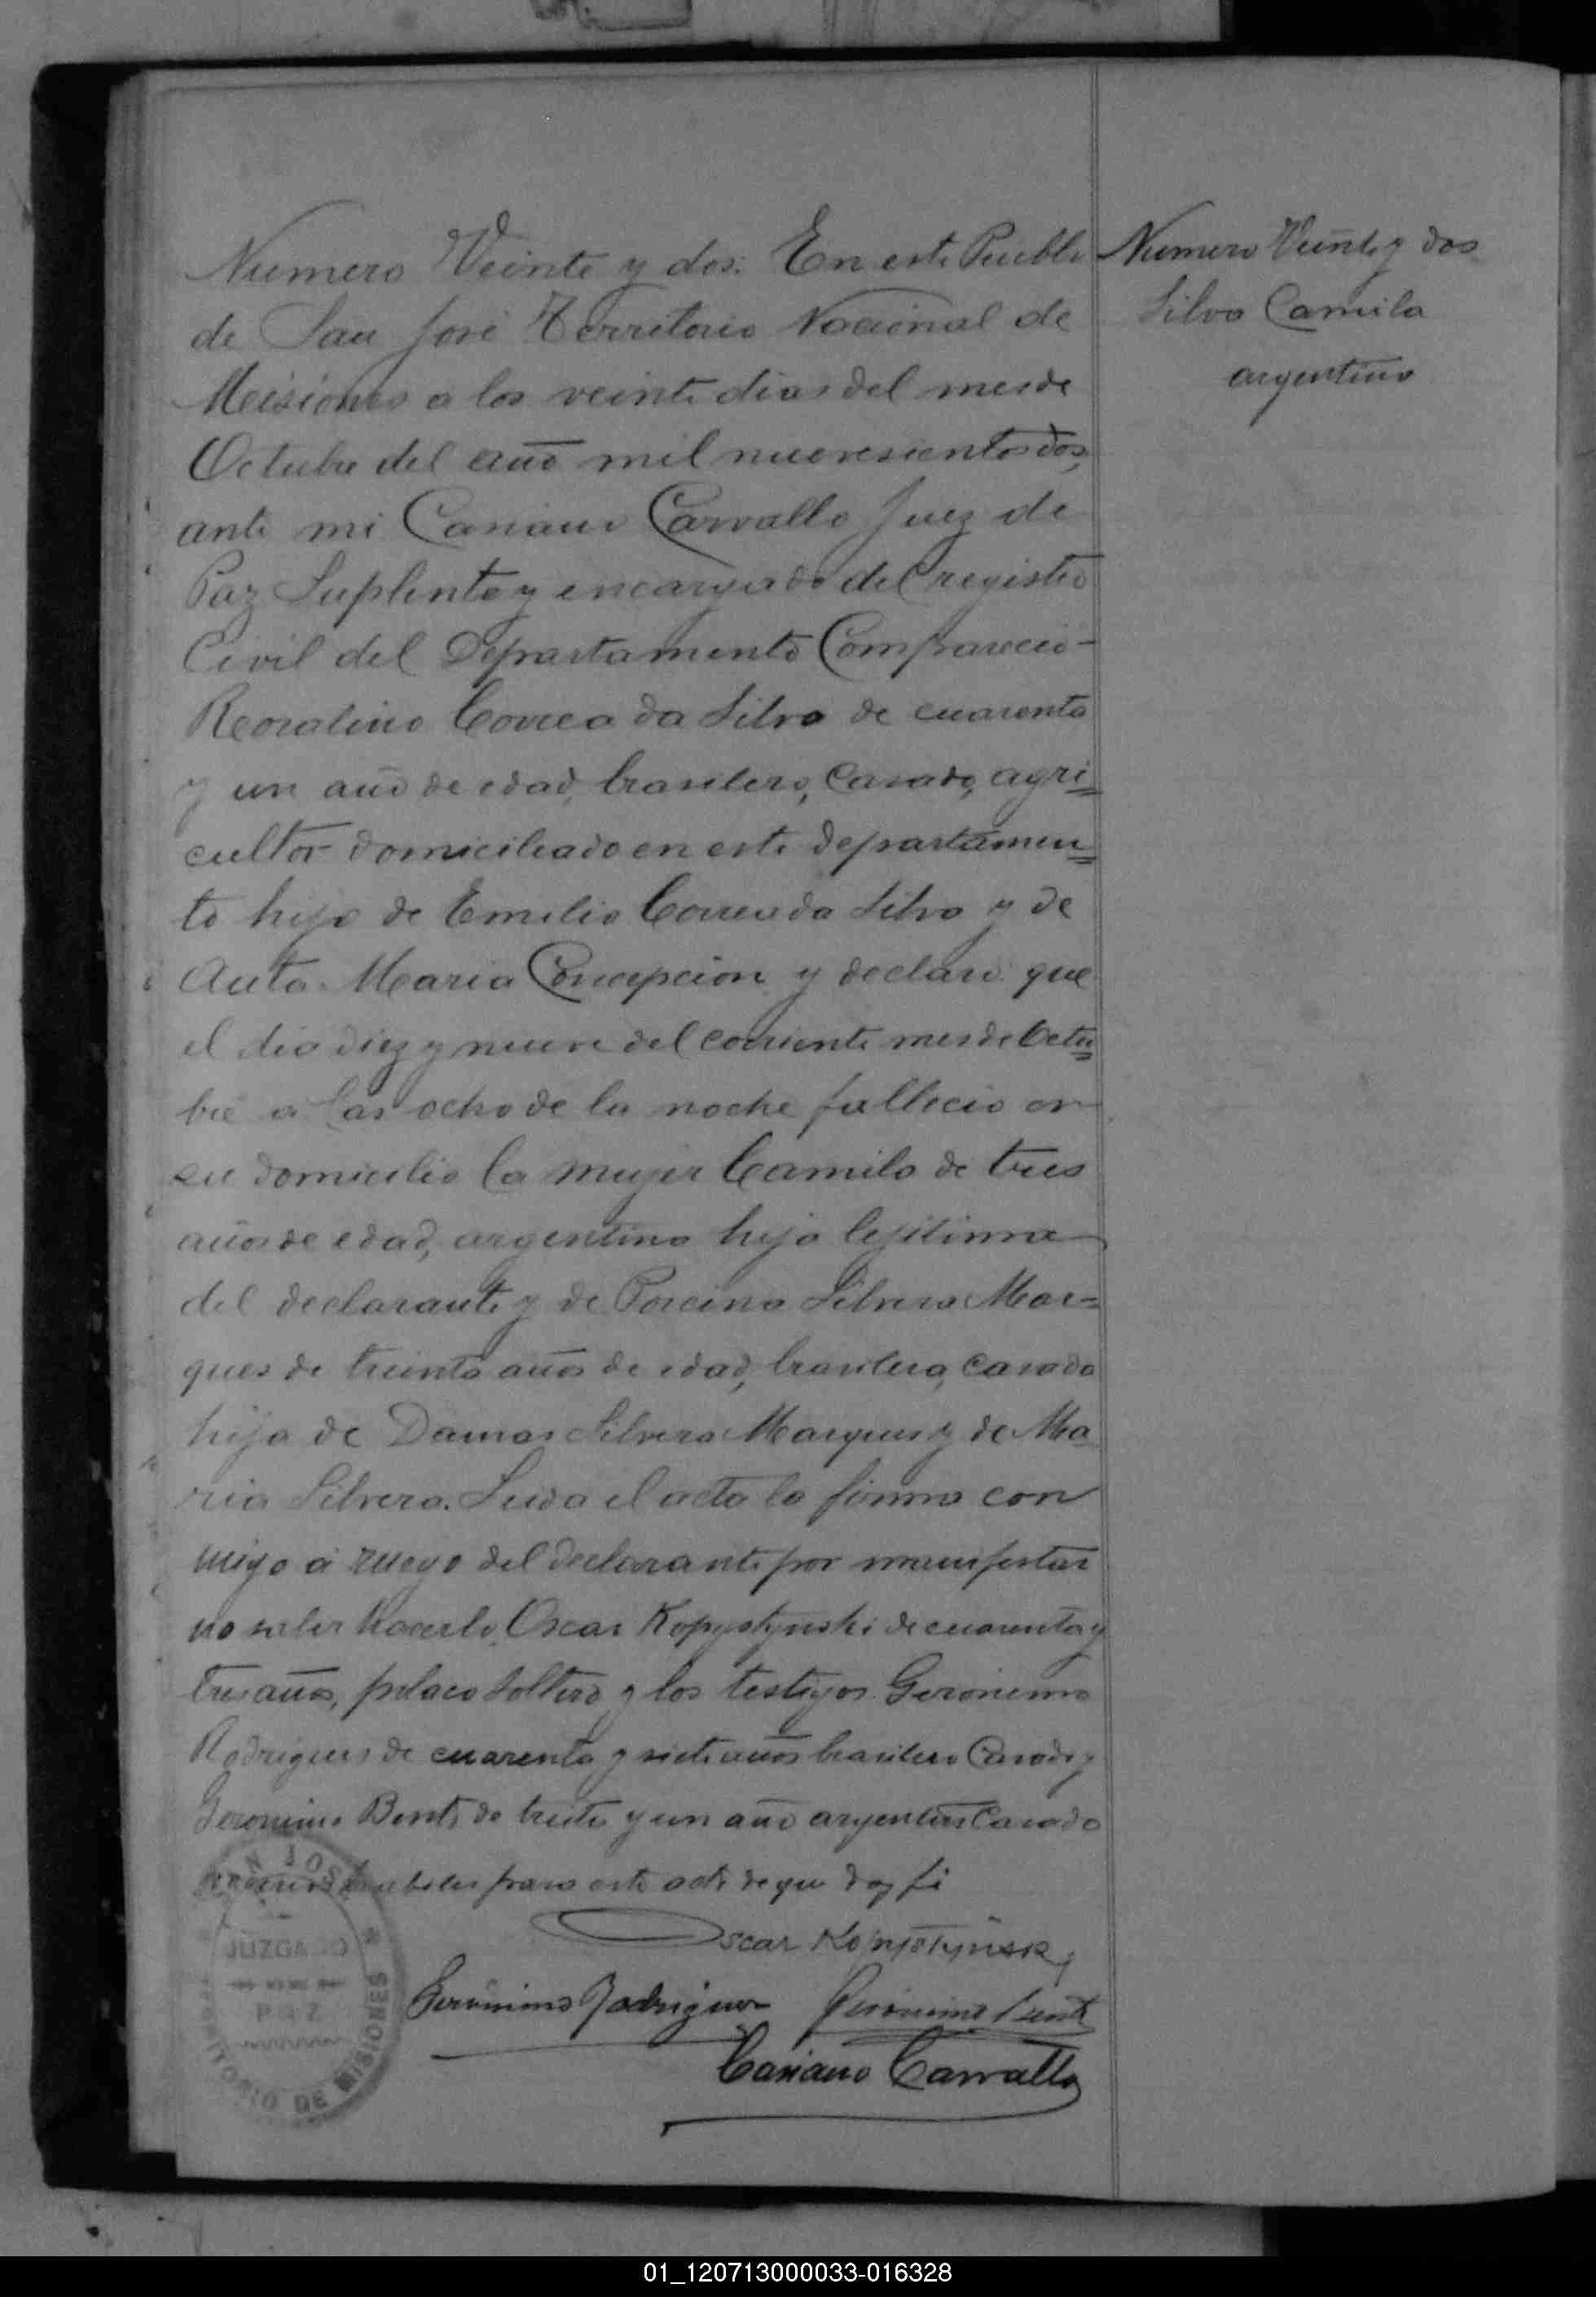 Numero Veinte y dos. En este Pueblo
de San José Territorio Nacional de
Misiones a los veinte dias del mes de
Octubre del año mil nuevesientos dos,
ante mi Casiano Carvallo Juez de
Paz Suplente y encargado del registro
Civil del Departamento Comparecio-
Correa da Silva de cuarenta
y un año de edad, brasilero, Casado, agri=
cultor domiciliado en este departamen=
to hijo de Emilio Correa da Silva y de
Maria Concepcion y declaro que
el dia diez y nueve del corriente mes de Octu=
bre a las ocho de la noche fallecio en
su domicilio la mujer Camila de tres
años de edad, argentina hija lejitima
del declarante y de Porcina Silvera Mar=
ques de treinta años de edad, brasilera, Casada
hija de Damas Silvera Marques y de Ma
ria Silvera. Leida el acta la firma con
migo a ruego del declarante por manifestar
no saber hacerlo, Oscar Kopystynski de cuarenta y
tres años, polaco soltero y los testigos Geronimo
Rodrigues de cuarenta y siete años brasilero Casado y
Geronimo Bente de treita y un año argentino Casado
habiles para este acto de que doy fé
Oscar Kopystynski
Gerónimo Rodriguez Geronimo Bente
Casiano Carvallo
Numero Veinte y dos
Silva Camila
argentina
SAN JOSE
JUZGADO
DE
PAZ
TERRITORIO DE MISIONES
01_120713000033-016328